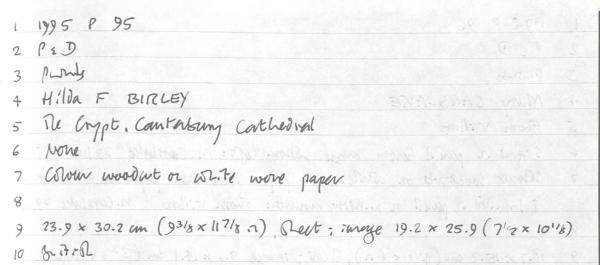 1 1995 P 95
2 P & D
3 Prints
4 Hilda F BIRLEY
5 The Crypt, Canterbury Cathedral
6 None
7 Colour woodcut on white wove paper
8
9 23.9 x 30.2 cm (9 3/8 x 11 7/8 in), Sheet; image 19.2 x 25.9 (7 1/2 x 10 1/8)
10 British